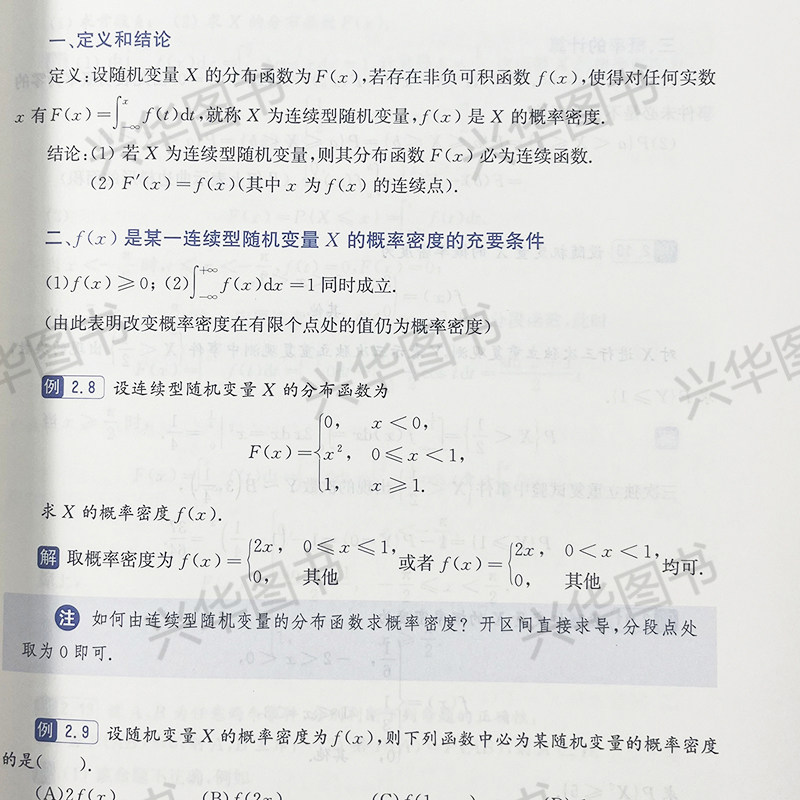 一、定义和结论
定义:设随机变量 X 的分布函数为 F(x),若存在非负可积函数 f(x),使得对任何实数
x 有 F(x)=∫_{-∞}^{x} f(t)dt,就称 X 为连续型随机变量,f(x) 是 X 的概率密度.
结论:(1) 若 X 为连续型随机变量,则其分布函数 F(x) 必为连续函数.
(2) F′(x)=f(x)(其中 x 为 f(x) 的连续点).
二、f(x) 是某一连续型随机变量 X 的概率密度的充要条件
(1)f(x)≥0; (2)∫_{-∞}^{+∞} f(x)dx=1 同时成立.
(由此表明改变概率密度在有限个点处的值仍为概率密度)
例 2.8 设连续型随机变量 X 的分布函数为
F(x)={0, x<0,
x², 0≤x<1,
1, x≥1.
求 X 的概率密度 f(x).
解 取概率密度为 f(x)={2x, 0≤x≤1, 0, 其他 或者 f(x)={2x, 0<x<1, 0, 其他 均可.
注 如何由连续型随机变量的分布函数求概率密度? 开区间直接求导,分段点处
取为 0 即可.
例 2.9 设随机变量 X 的概率密度为 f(x),则下列函数中必为某随机变量的概率密度
的是( ).
(A)2f(x) (B)f(2x)
兴华图书
兴华图书
兴华图书
兴华图书
兴华图书
兴华图书
兴华图书